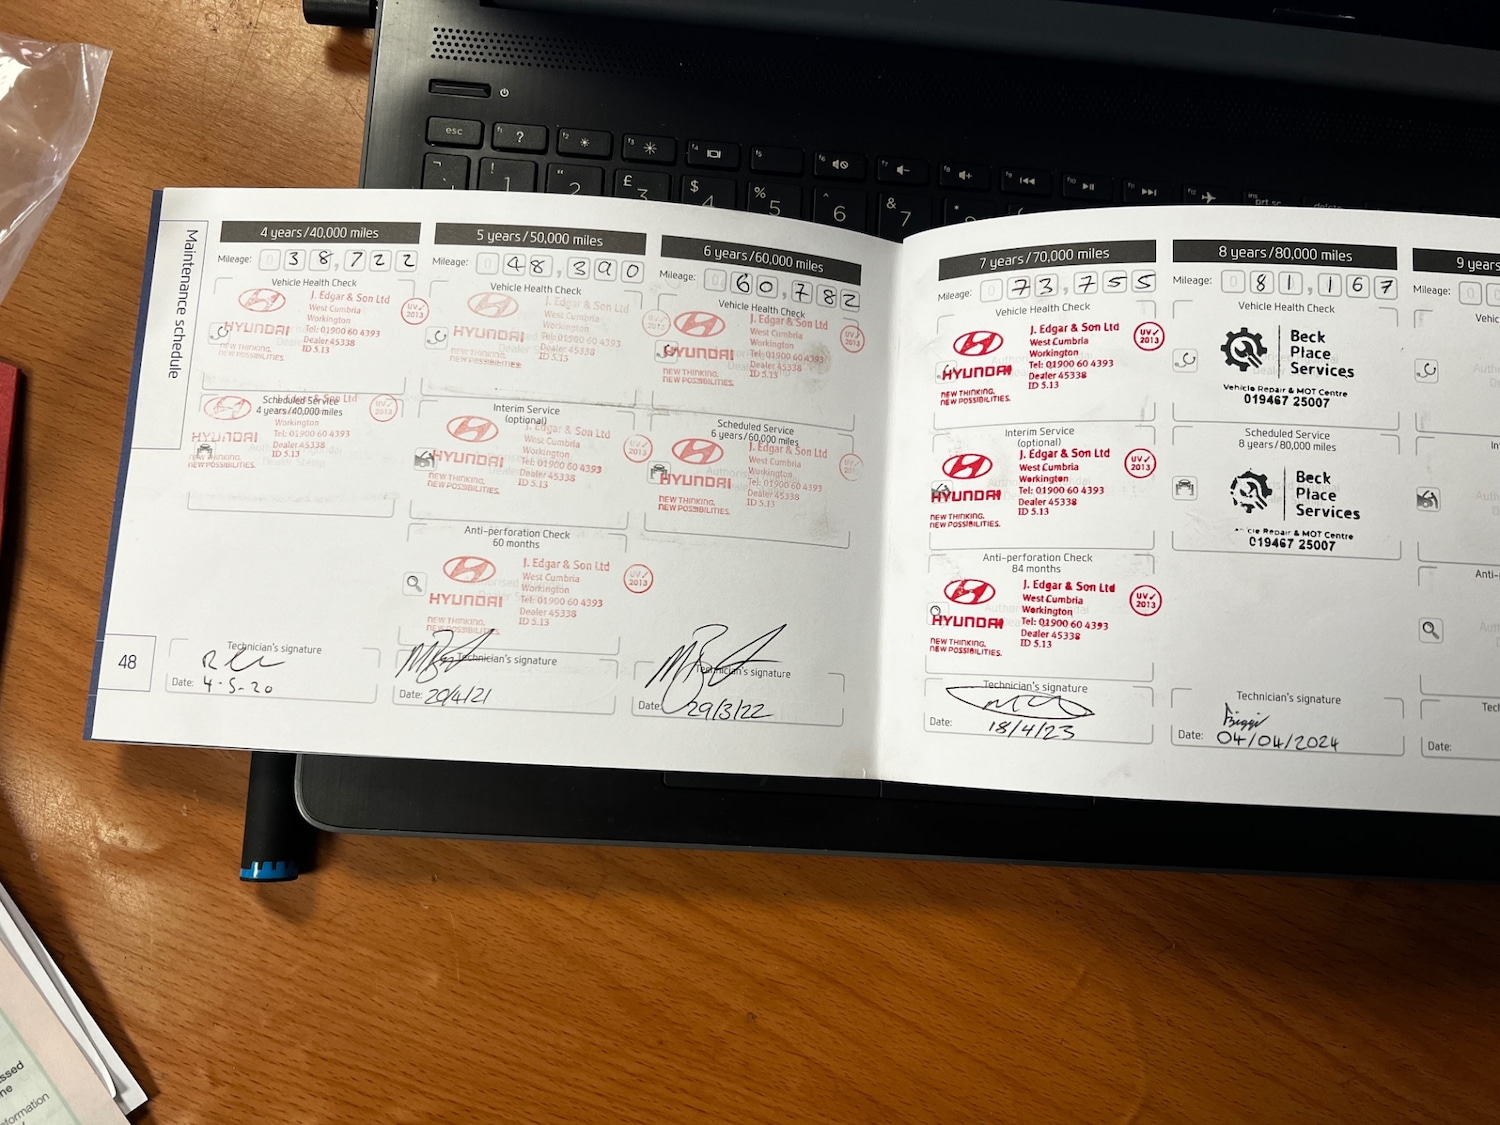 esc
f1 ?
f2
f3
f4
f5
f6
f7
f8
f9
f10
f11
f12
prt sc
delete
!
1
"
2
£
3
$
4
%
5
^
6
&
7
*
(
Maintenance schedule
48
4 years/40,000 miles
Mileage: 0 38,722
Vehicle Health Check
HYUNDAI
NEW THINKING.
NEW POSSIBILITIES.
J. Edgar & Son Ltd
West Cumbria
Workington
Tel: 01900 60 4393
Dealer 45338
ID 5.13
UV✓
2013
Scheduled Service
4 years/40,000 miles
HYUNDAI
NEW THINKING.
NEW POSSIBILITIES.
J. Edgar & Son Ltd
Workington
Tel: 01900 60 4393
Dealer 45338
ID 5.13
UV✓
2013
Technician's signature
Date: 4-5-20
5 years/50,000 miles
Mileage: 0 48,390
Vehicle Health Check
HYUNDAI
NEW THINKING.
NEW POSSIBILITIES.
J. Edgar & Son Ltd
West Cumbria
Workington
Tel: 01900 60 4393
Dealer 45338
ID 5.13
Interim Service
(optional)
HYUNDAI
NEW THINKING.
NEW POSSIBILITIES.
J. Edgar & Son Ltd
West Cumbria
Workington
Tel: 01900 60 4393
Dealer 45338
ID 5.13
UV✓
2013
Anti-perforation Check
60 months
HYUNDAI
NEW THINKING.
NEW POSSIBILITIES.
J. Edgar & Son Ltd
West Cumbria
Workington
Tel: 01900 60 4393
Dealer 45338
ID 5.13
UV✓
2013
Technician's signature
Date: 20/4/21
6 years/60,000 miles
Mileage: 0 60,782
Vehicle Health Check
HYUNDAI
NEW THINKING.
NEW POSSIBILITIES.
J. Edgar & Son Ltd
West Cumbria
Workington
Tel: 01900 60 4393
Dealer 45338
ID 5.13
UV✓
2013
Scheduled Service
6 years/60,000 miles
HYUNDAI
NEW THINKING.
NEW POSSIBILITIES.
J. Edgar & Son Ltd
West Cumbria
Workington
Tel: 01900 60 4393
Dealer 45338
ID 5.13
UV✓
2013
Technician's signature
Date: 29/3/22
7 years/70,000 miles
Mileage: 0 73,755
Vehicle Health Check
HYUNDAI
NEW THINKING.
NEW POSSIBILITIES.
J. Edgar & Son Ltd
West Cumbria
Workington
Tel: 01900 60 4393
Dealer 45338
ID 5.13
UV✓
2013
Interim Service
(optional)
HYUNDAI
NEW THINKING.
NEW POSSIBILITIES.
J. Edgar & Son Ltd
West Cumbria
Workington
Tel: 01900 60 4393
Dealer 45338
ID 5.13
UV✓
2013
Anti-perforation Check
84 months
HYUNDAI
NEW THINKING.
NEW POSSIBILITIES.
J. Edgar & Son Ltd
West Cumbria
Workington
Tel: 01900 60 4393
Dealer 45338
ID 5.13
UV✓
2013
Technician's signature
Date: 18/4/23
8 years/80,000 miles
Mileage: 0 81,167
Vehicle Health Check
Beck
Place
Services
Vehicle Repair & MOT Centre
019467 25007
Scheduled Service
8 years/80,000 miles
Beck
Place
Services
Repair & MOT Centre
019467 25007
Technician's signature
Date: 04/04/2024
9 years
Mileage: 0
Vehic
In
Anti-
Tec
Date: